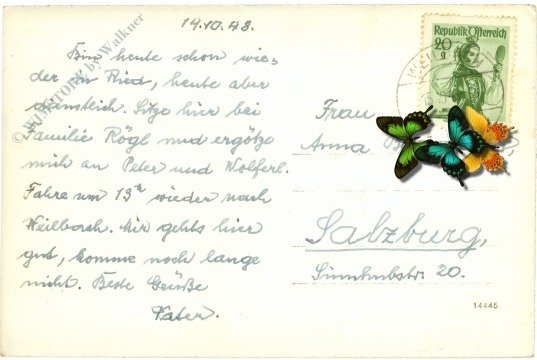 14.10.48.
Bin heute schon wie-
der in Ried, heute aber
dienstlich. Sitze hier bei
Familie Rögl und ergötze
mich an Peter und Wolferl.
Fahre um 13h wieder nach
Weilbach. Mir gehts hier
gut, komme noch lange
nicht. Beste Grüße
Vater.
Republik Österreich
20
Frau
Anna
Salzburg,
Sinnhubstr. 20.
14445
© WIMSTORE by Walkner